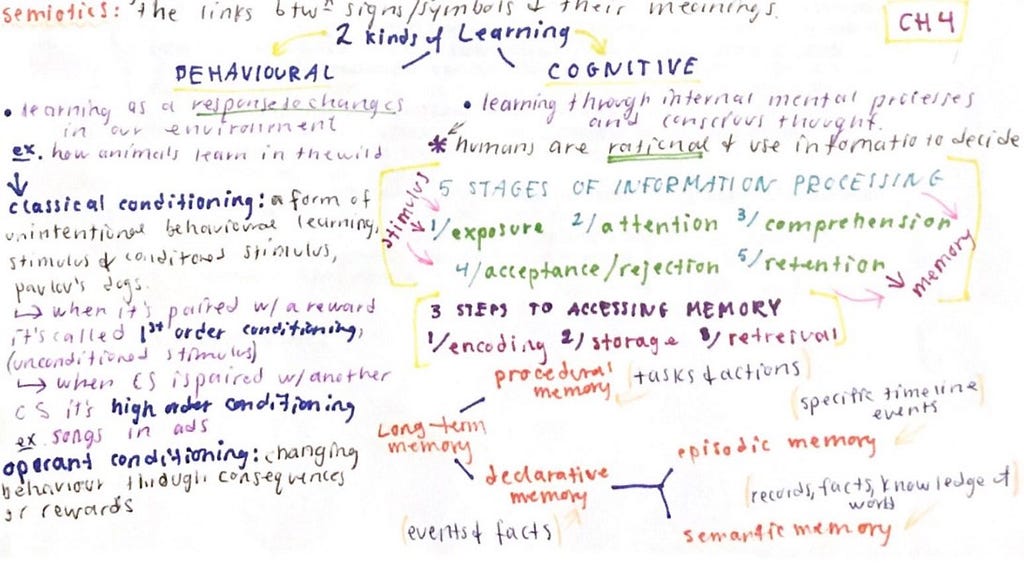 semiotics: the links btwn signs/symbols & their meanings.
CH 4
2 kinds of Learning
BEHAVIOURAL
• learning as a response to changes
in our environment
ex. how animals learn in the wild
classical conditioning: a form of
unintentional behavioural learning,
stimulus & conditoned stimulus,
pavlov's dogs.
↳ when it's paired w/ a reward
it's called 1st order conditioning,
(unconditioned stimulus)
↳ when CS is paired w/ another
CS it's high order conditioning
ex. songs in ads
operant conditioning: changing
behaviour through consequences
or rewards
COGNITIVE
• learning through internal mental processes
and conscious thought.
* humans are rational & use informatio to decide
5 STAGES OF INFORMATION PROCESSING
stimulus
1/exposure 2/attention 3/comprehension
4/acceptance/rejection 5/retention
memory
3 STEPS TO ACCESSING MEMORY
1/encoding 2/storage 3/retreival
Long-term
memory
procedural
memory
(tasks & actions)
declarative
memory
(events & facts)
(specific timeline
events)
episodic memory
(records, facts, knowledge of
world)
semantic memory